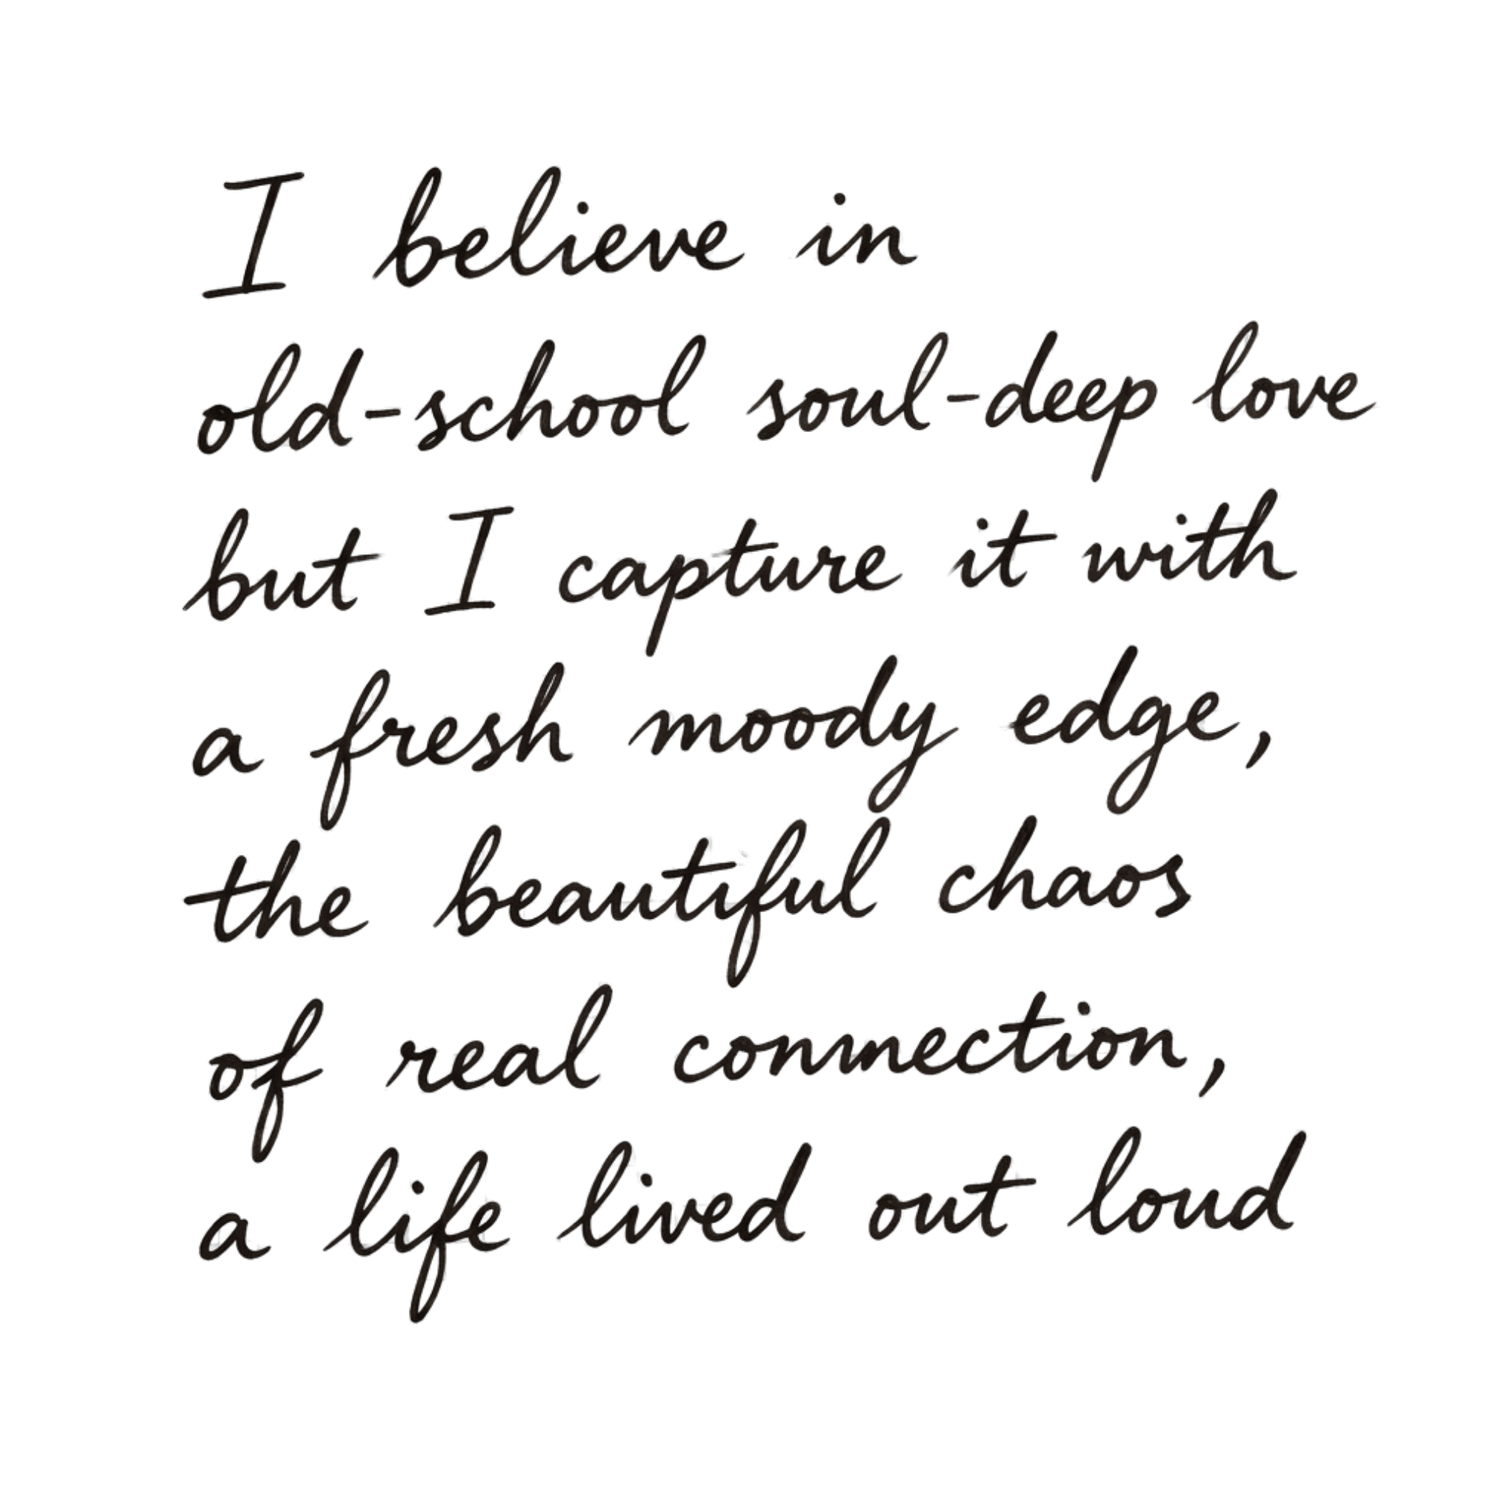 I believe in
old-school soul-deep love
but I capture it with
a fresh moody edge,
the beautiful chaos
of real connection,
a life lived out loud